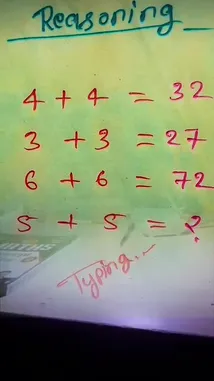 Reasoning
4 + 4 = 32
3 + 3 = 27
6 + 6 = 72
5 + 5 = ?
Typing...